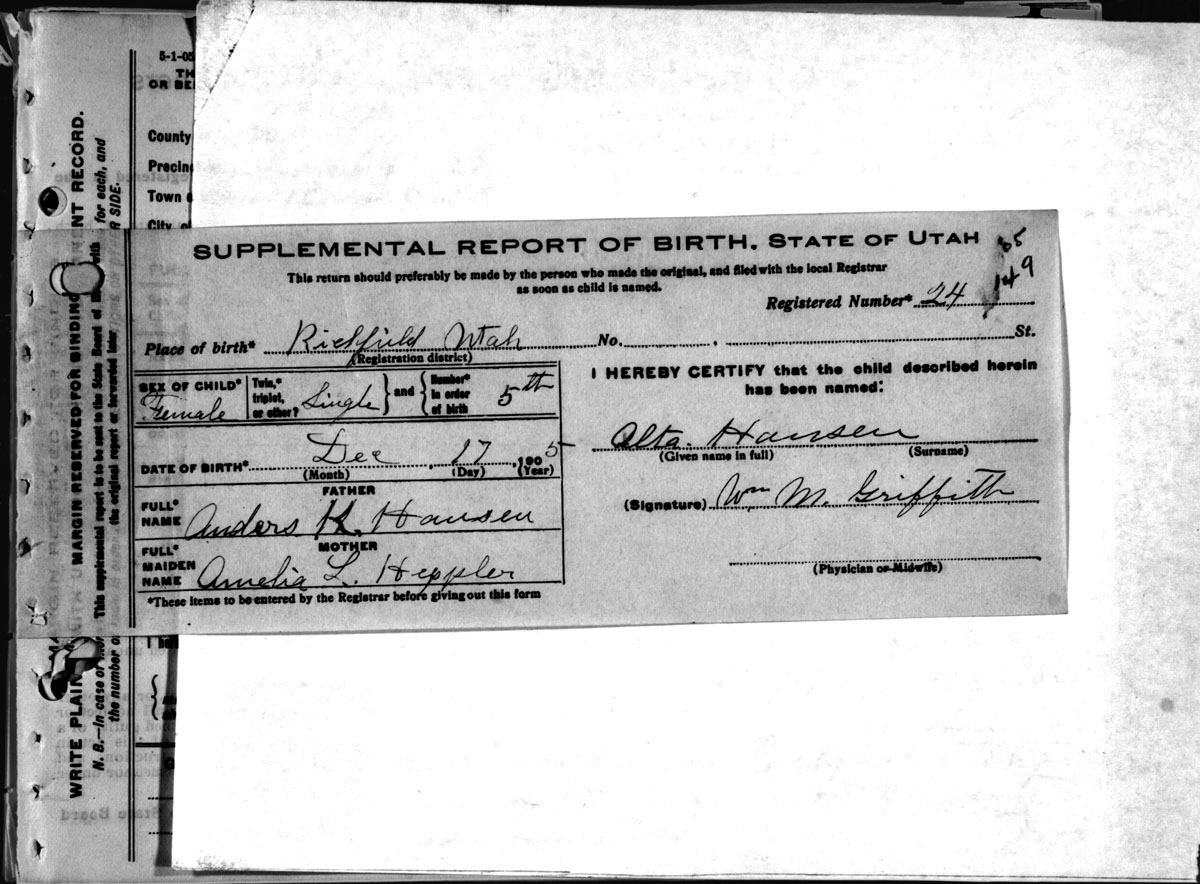 5-1-05
TH
OR BE
County
Precin
Town
City of
WRITE PLAIN
MARGIN RESERVED FOR BINDING
NENT RECORD.
N. B.—In case of mor
This supplemental report is to be sent to the State Board of H
for each, and
the number o
the original report or forwarded later
R SIDE.
SUPPLEMENTAL REPORT OF BIRTH. STATE OF UTAH
This return should preferably be made by the person who made the original, and filed with the local Registrar
as soon as child is named.
85
149
Registered Number* 24
Place of birth* Richfield Utah No. , St.
(Registration district)
SEX OF CHILD* Female Twin,* triplet, or other? Single } and { Number* in order of birth 5th
DATE OF BIRTH* Dec , 17 , 1905
(Month) (Day) (Year)
FATHER
FULL* NAME Anders K. Hansen
MOTHER
FULL* MAIDEN NAME Amelia L. Heppler
*These items to be entered by the Registrar before giving out this form
I HEREBY CERTIFY that the child described herein
has been named:
Alta Hansen
(Given name in full) (Surname)
(Signature) Wm M. Griffith
(Physician or Midwife)